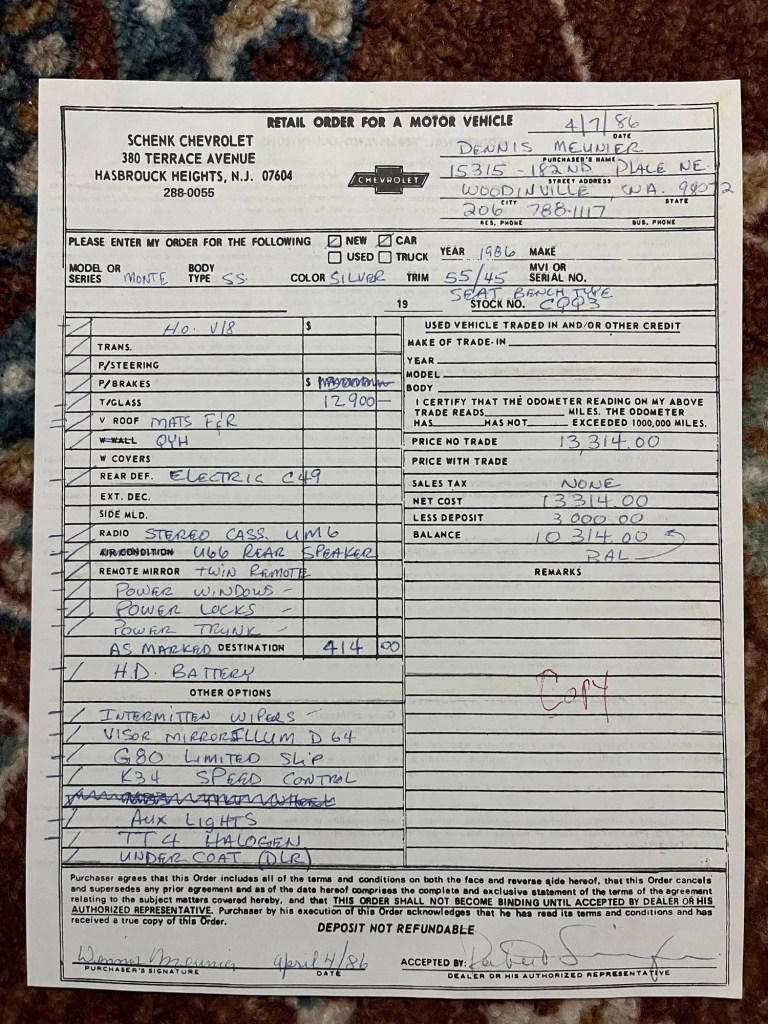 RETAIL ORDER FOR A MOTOR VEHICLE 4/7/86
DATE
SCHENK CHEVROLET
380 TERRACE AVENUE
HASBROUCK HEIGHTS, N.J. 07604
288-0055
CHEVROLET
DENNIS MEUNIER
PURCHASER'S NAME
15315 - 182ND PLACE NE.
STREET ADDRESS
WOODINVILLE, WA. 98072
CITY STATE
206 788-1117
RES. PHONE BUS. PHONE
PLEASE ENTER MY ORDER FOR THE FOLLOWING NEW CAR
USED TRUCK YEAR 1986 MAKE
MODEL OR SERIES MONTE BODY TYPE SS. COLOR SILVER TRIM 55/45 MVI OR SERIAL NO.
SEAT BENCH TYPE
19 STOCK NO.
H.O. V/8 $
TRANS.
P/STEERING
P/BRAKES $
T/GLASS 12.900—
V ROOF MATS F&R
W-WALL QYH
W COVERS
REAR DEF. ELECTRIC C49
EXT. DEC.
SIDE MLD.
RADIO STEREO CASS. UM6
AIR CONDITION U66 REAR SPEAKER
REMOTE MIRROR TWIN REMOTE
POWER WINDOWS -
POWER LOCKS -
POWER TRUNK -
AS MARKED DESTINATION 414 00
H.D. BATTERY
OTHER OPTIONS
INTERMITTEN WIPERS -
VISOR MIRROR ILLUM D64
G80 LIMITED SLIP
K34 SPEED CONTROL
AUX LIGHTS
TT4 HALOGEN
UNDER COAT (DLR)
USED VEHICLE TRADED IN AND/OR OTHER CREDIT
MAKE OF TRADE-IN
YEAR
MODEL
BODY
I CERTIFY THAT THE ODOMETER READING ON MY ABOVE
TRADE READS MILES. THE ODOMETER
HAS HAS NOT EXCEEDED 1000,000 MILES.
PRICE NO TRADE 13,314.00
PRICE WITH TRADE
SALES TAX NONE
NET COST 13314.00
LESS DEPOSIT 3000.00
BALANCE 10314.00
BAL
REMARKS
Copy
Purchaser agrees that this Order includes all of the terms and conditions on both the face and reverse side hereof, that this Order cancels
and supersedes any prior agreement and as of the date hereof comprises the complete and exclusive statement of the terms of the agreement
relating to the subject matters covered hereby, and that THIS ORDER SHALL NOT BECOME BINDING UNTIL ACCEPTED BY DEALER OR HIS
AUTHORIZED REPRESENTATIVE. Purchaser by his execution of this Order acknowledges that he has read its terms and conditions and has
received a true copy of this Order.
DEPOSIT NOT REFUNDABLE
Dennis Meunier April 4/86 ACCEPTED BY: Robert
PURCHASER'S SIGNATURE DATE DEALER OR HIS AUTHORIZED REPRESENTATIVE